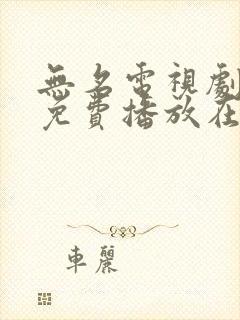 無名電視劇
免費播放在
車麗